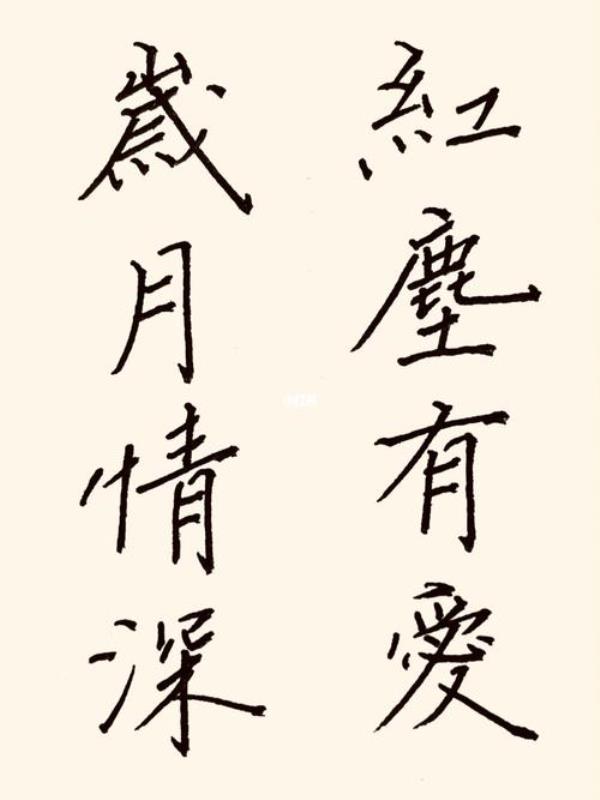 紅塵有愛
歲月情深